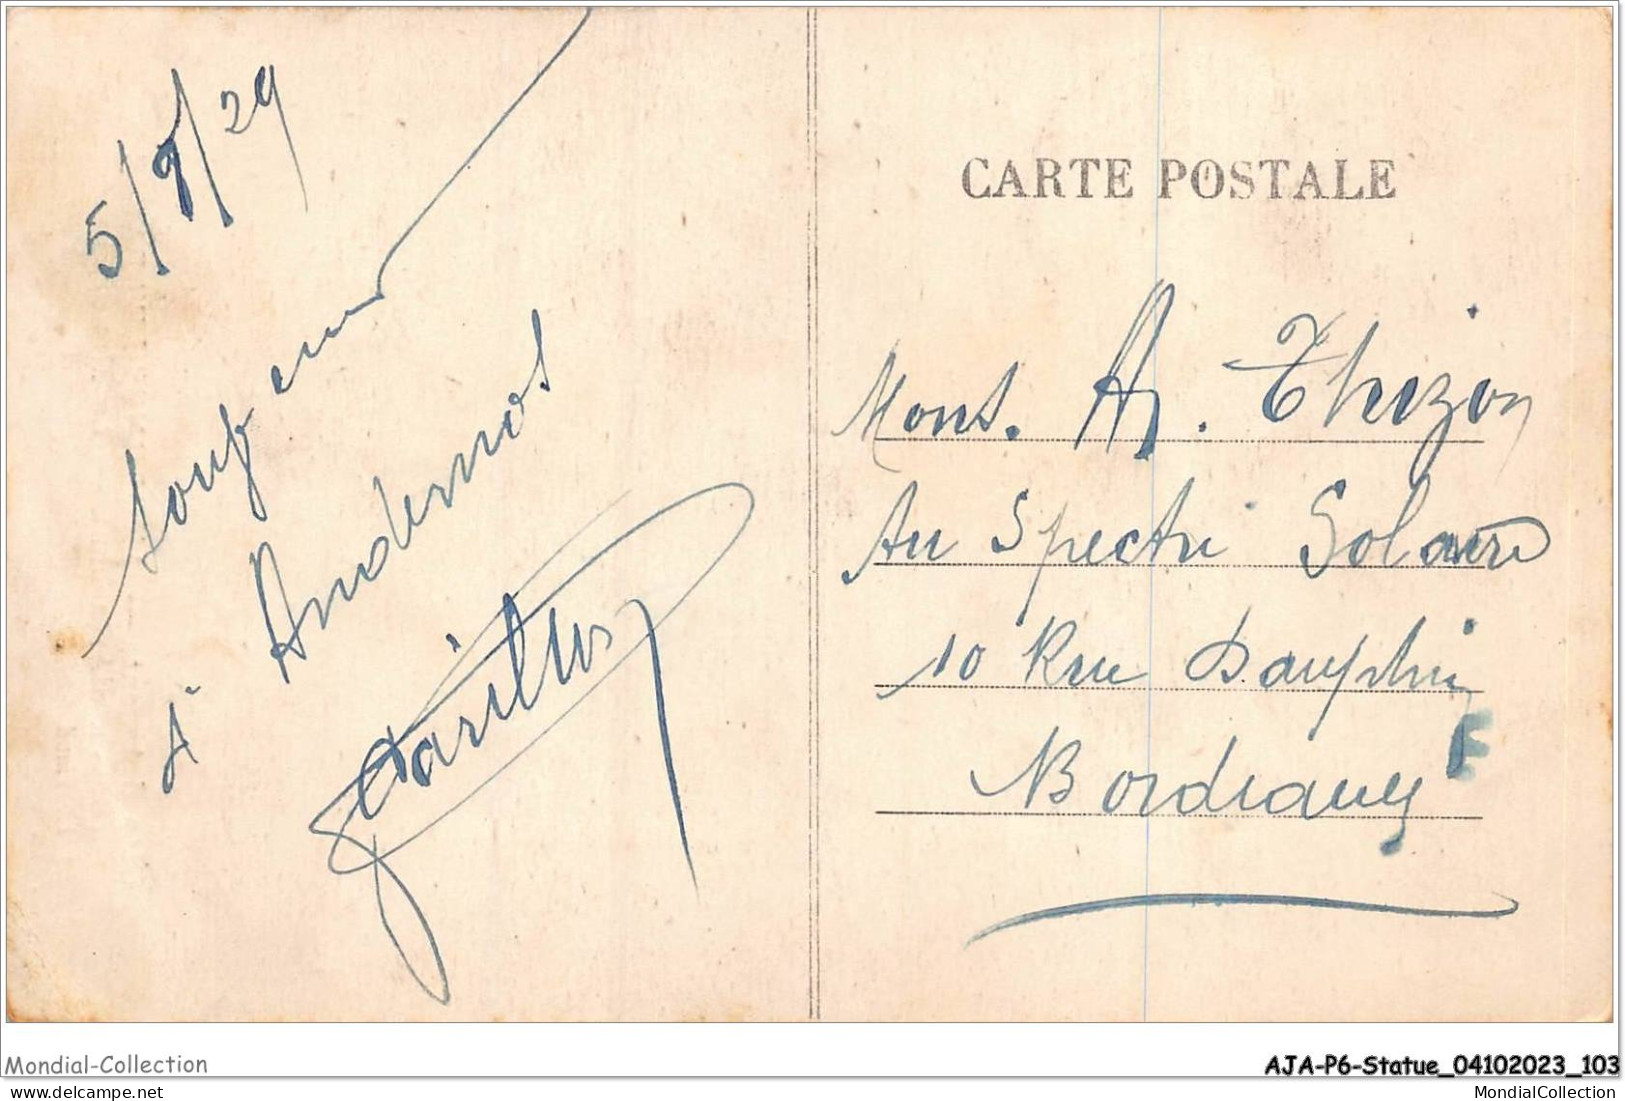 5/8/29
Souvenir
d'
Andernos
CARTE POSTALE
Mons. A. Thizon
Au Spectre Solaire
10 Rue Dauphin
Bordeaux
Mondial-Collection
AJA-P6-Statue_04102023_103
www.delcampe.net
MondialCollection